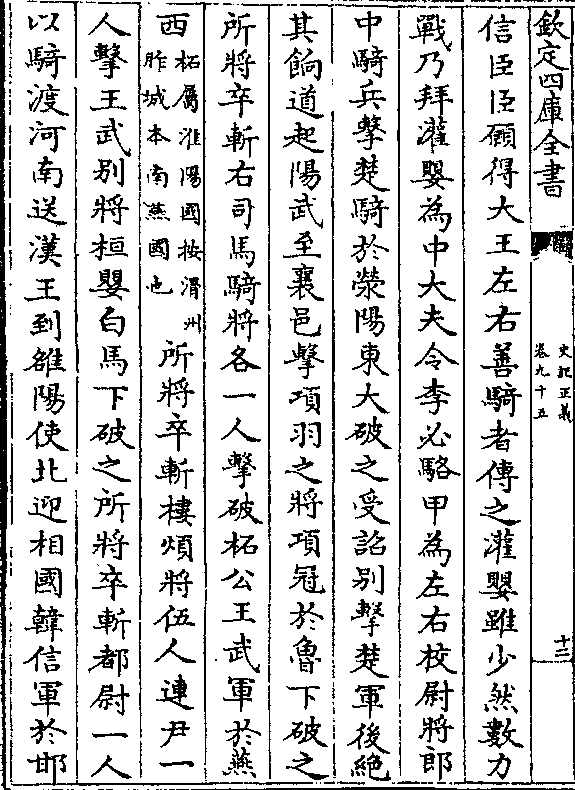 欽定四庫全書
史記正義
卷九十五
十三
信臣臣願得大王左右善騎者傳之灌嬰雖少然數力
戰乃拜灌嬰為中大夫令李必駱甲為左右校尉將郎
中騎兵擊楚騎於滎陽東大破之受詔别擊楚軍後絶
其餉道起陽武至襄邑擊項羽之將項冠於魯下破之
所將卒斬右司馬騎將各一人擊破柘公王武軍於燕
西柘屬淮陽國按滑州
胙城本南燕國也所將卒斬樓煩將伍人連尹一
人擊王武别將桓嬰白馬下破之所將卒斬都尉一人
以騎渡河南送漢王到雒陽使北迎相國韓信軍於邯